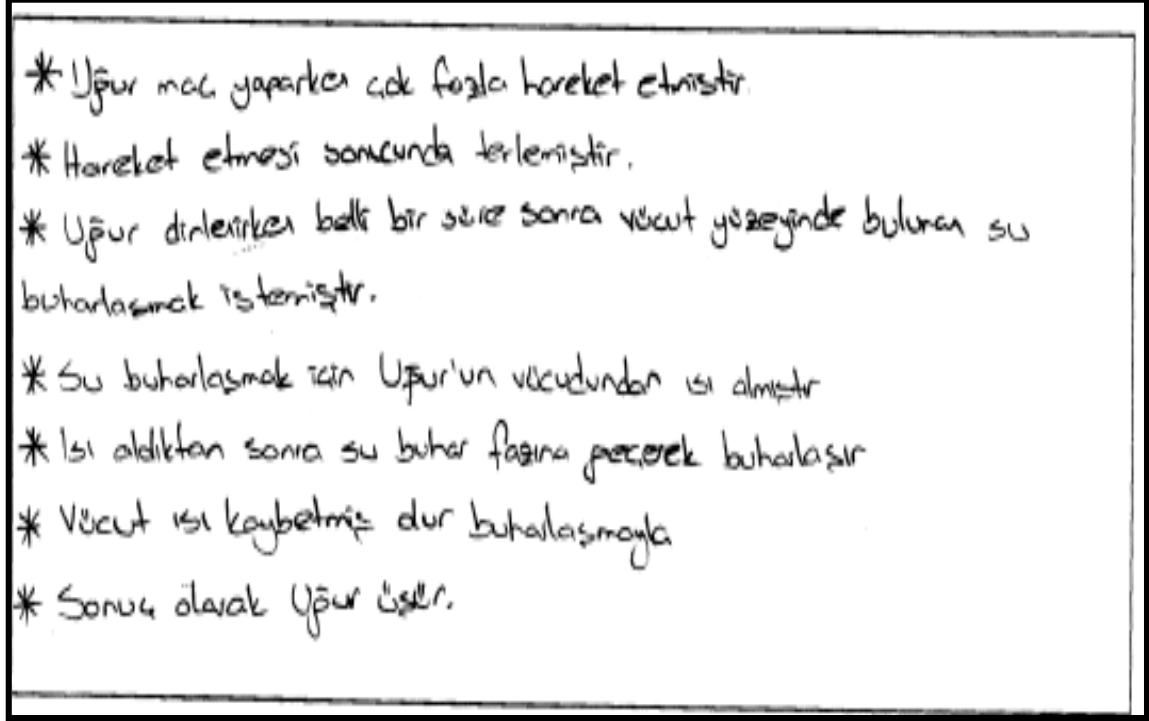 * Uğur maç yaparken çok fazla hareket etmiştir.
* Hareket etmesi sonucunda terlemiştir.
* Uğur dinlenirken belli bir süre sonra vücut yüzeyinde bulunan su
buharlaşmak istemiştir.
* Su buharlaşmak için Uğur'un vücudundan ısı almıştır
* Isı aldıktan sonra su buhar fazına geçerek buharlaşır
* Vücut ısı kaybetmiş dur buharlaşmayla
* Sonuç olarak Uğur üşür.